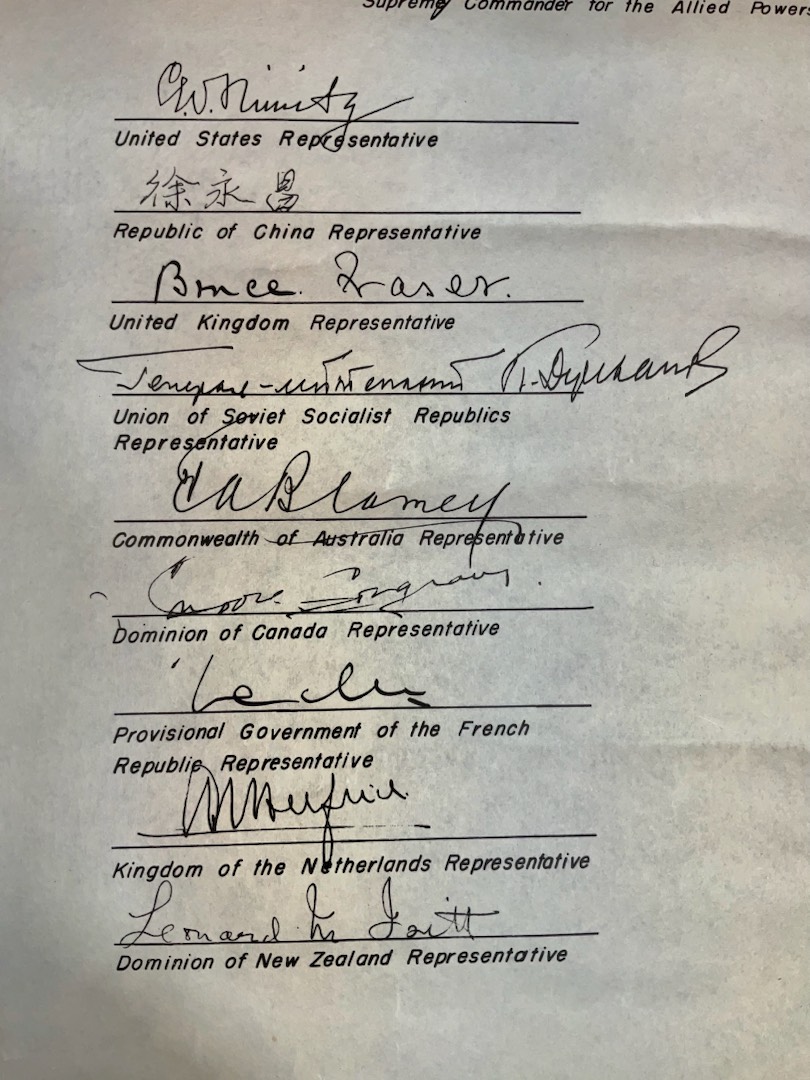 Supreme Commander for the Allied Powers
C.W. Nimitz
United States Representative
徐永昌
Republic of China Representative
Bruce Fraser.
United Kingdom Representative
Генерал-лейтенант
Union of Soviet Socialist Republics
Representative
T A Blamey
Commonwealth of Australia Representative
Moore Cosgrave.
Dominion of Canada Representative
Leclerc
Provisional Government of the French
Republic Representative
Helfrich
Kingdom of the Netherlands Representative
Leonard M Isitt
Dominion of New Zealand Representative